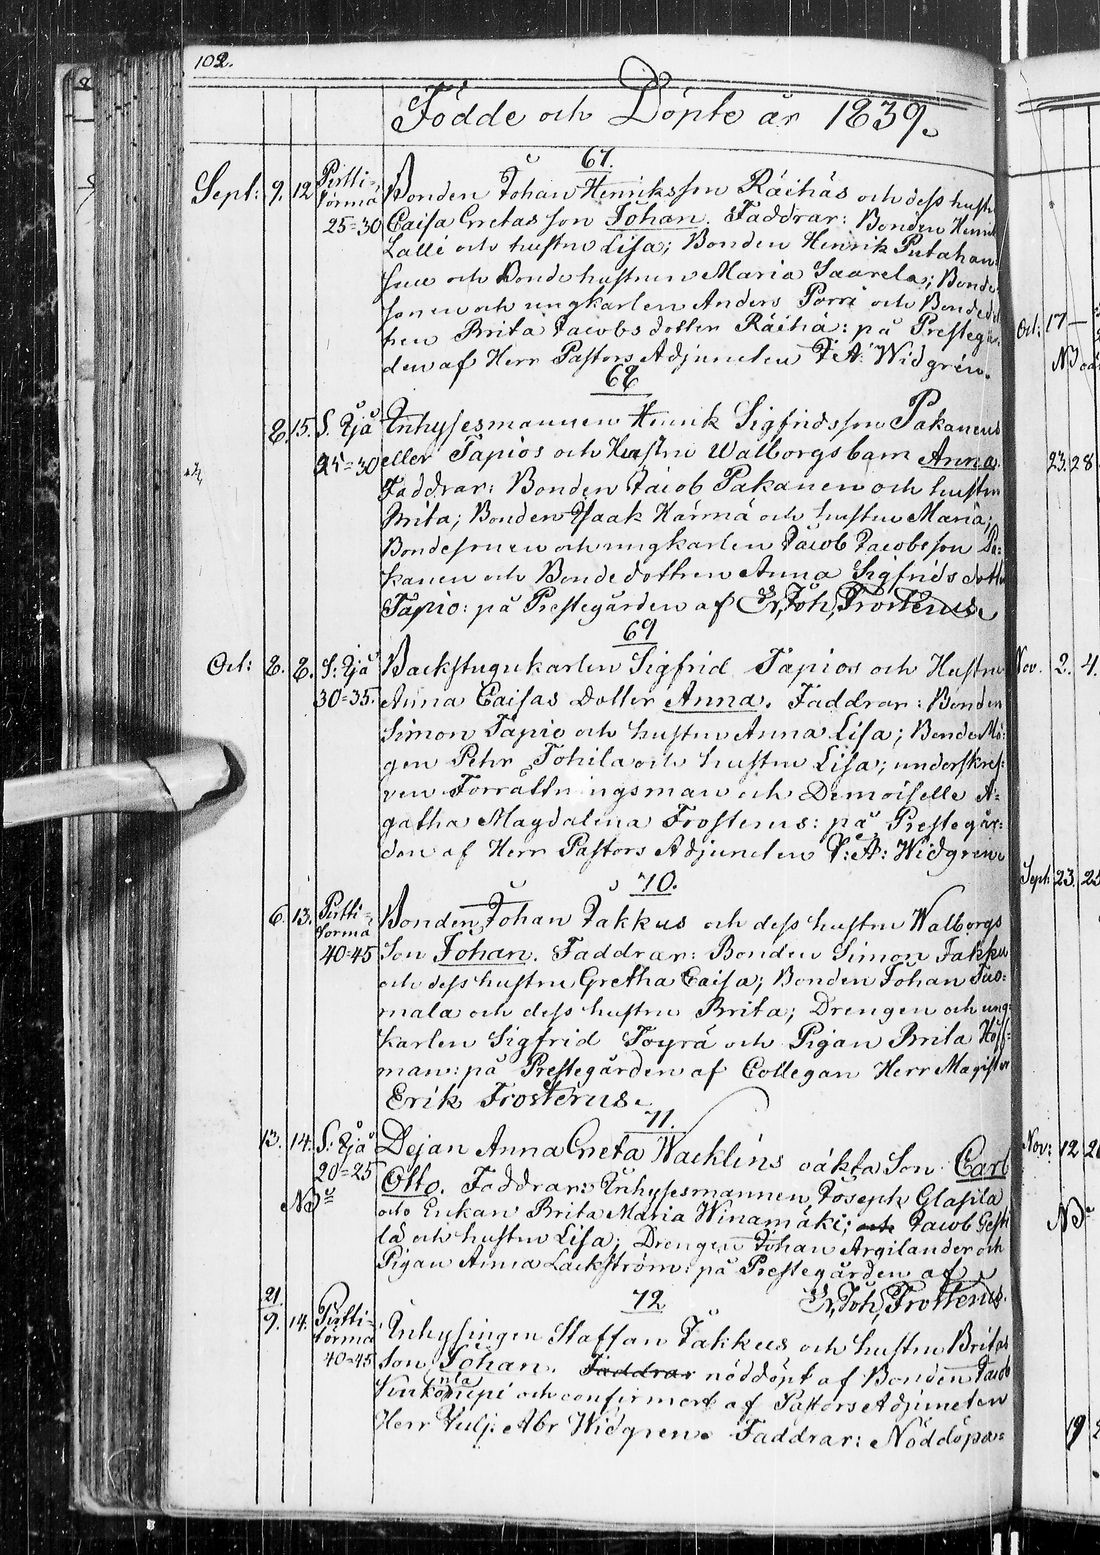 102.
Födde och Döpte år 1839.
67.
Sept: 9. 12 Pirtti- Bonden Johan Henriksson Räihäs och dess hustr
törmä Caisa Gretas son Johan. Faddrar: Bonden Henrik
25=30 Lalli och hustru Lisa; Bonden Henrik Putahan=
suu och Bondehustrun Maria Saarela; Bonde
sonen och ungkarlen Anders Porri och Bonded
ren Brita Jacobsdotter Räihä: på Prestegår
den af Herr Pastors Adjuncten J: A: Widgrén.
68
8. 15. S. Ijå Inhysesmannen Henrik Sigfridsson Pakanens
25=30 eller Tapios och Hustru Walborgs barn Anna.
Faddrar: Bonden Jacob Pakanen och hustru
Brita; Bonden Isaak Härmä och hustru Maria;
Bondesonen och ungkarlen Jacob Jacobsson Pa=
kanen och Bondedottren Anna Sigfridsdotter
Tapio: på Prestegården af Er. Joh. Frosterus.
69
Oct: 8. 8. S: Ijå Backstugukarlen Sigfrid Tapios och Hustru
30=35. Anna Caisas Dotter Anna. Faddrar: Bonden
Simon Tapio och hustru Anna Lisa; Bonde Må=
gen Pehr Tohila och hustru Lisa; underskref=
ven Förrättningsman och Demoiselle A=
gatha Magdalina Frosterus: på Prestegår=
den af Herr Pastors Adjuncten J: A: Widgren.
70.
6. 13. Pirtti= Bonden Johan Jakkus och dess hustru Walborgs
törmä Son Johan. Faddrar: Bonden Simon Jakku
40=45 och dess hustru Gretha Caisa; Bonden Johan Tuo=
mala och dess hustru Brita; Drengen och ung=
karlen Sigfrid Töyrä och Pigan Brita Hoff=
man: på Prestegården af Collegan Herr Magister
Erik Frosterus.
71.
13. 14. S. Ijå Dejan Anna Greta Wacklins oäkta Son Carl
20=25 Otto. Faddrar: Inhysesmannen Joseph Glasila
NB och Enkan Brita Maria Winamäki; och Jacob Gesti
lä och hustru Lisa; Drengen Johan Argilander och
Pigan Anna Lackström: på Prestegården af
Er. Joh. Frosterus.
72
21.
9. 14. Pirtti= Inhysingen Staffan Jakkus och hustru Britas
törmä Son Johan. Faddrar nöddöpt af Bonden Jacob
40=45 och confirmert af Pastors Adjuncten
Herr Abr Widgren. Faddrar: Nöddöpa=
Oct: 17 —
NB
23. 28
Nov. 2. 4.
Sept: 23. 25
Nov: 12
NB
19